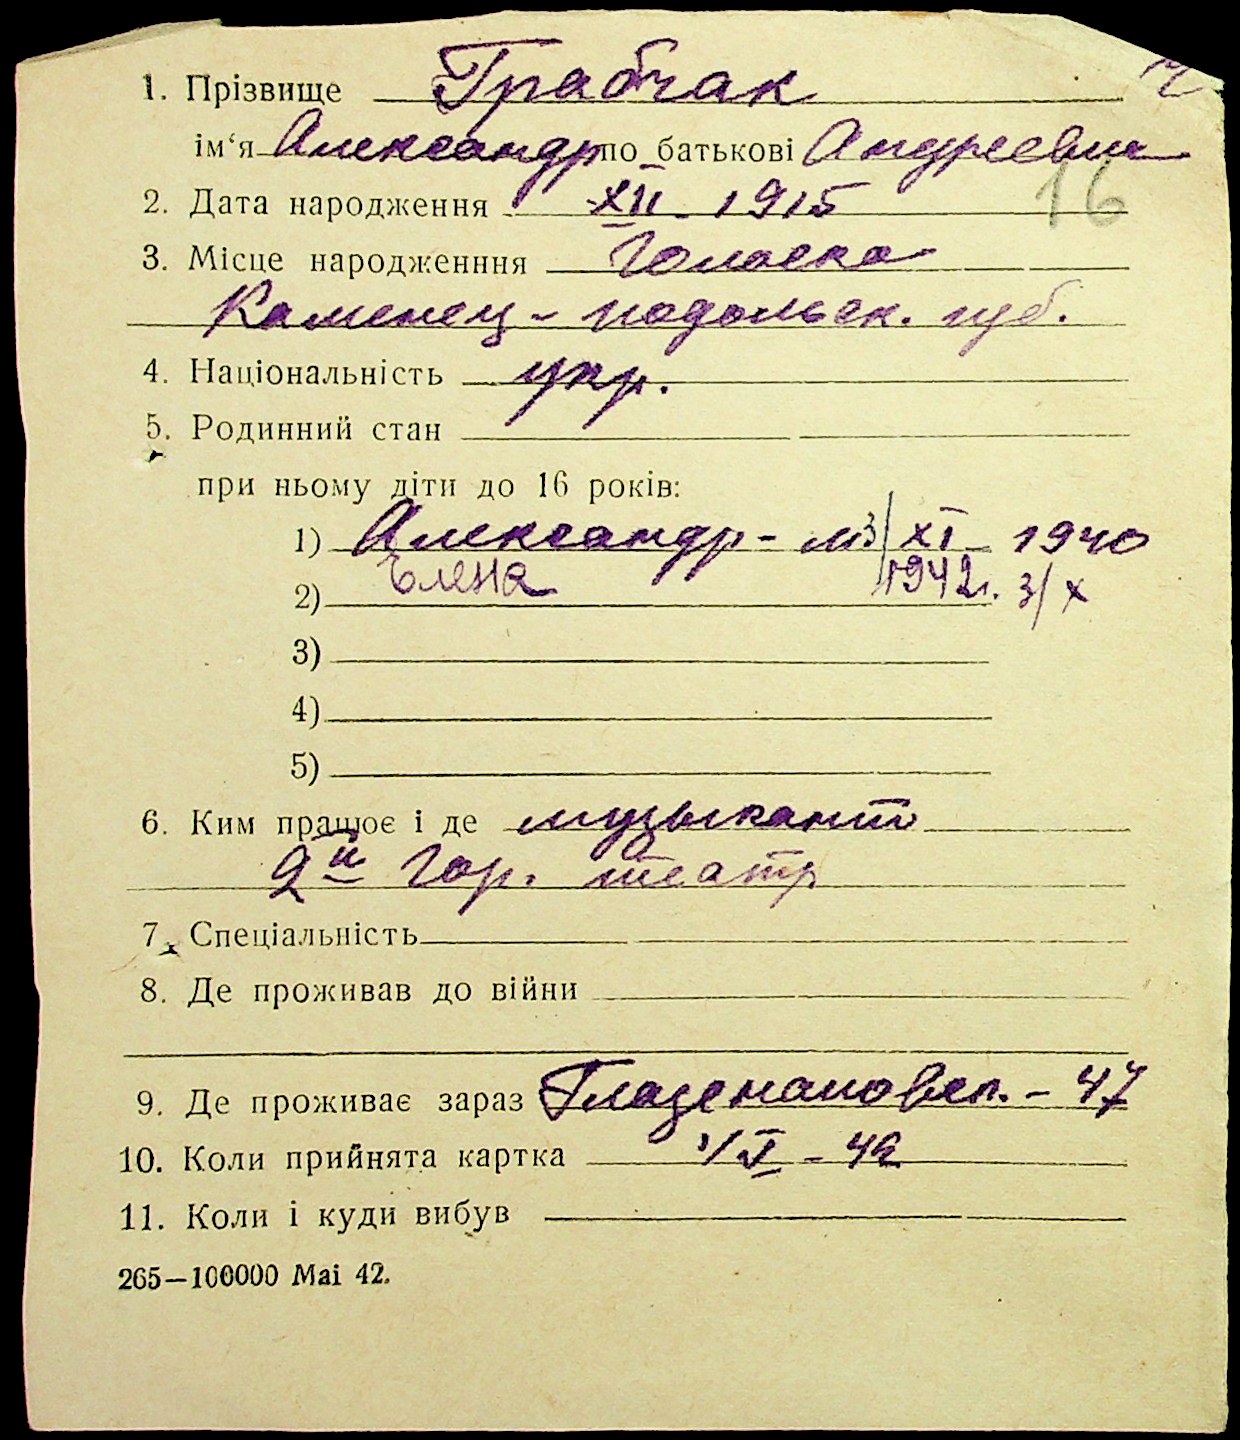 1. Прізвище Грабчак
ім‘я Александр по батькові Андреевич
16
2. Дата народження XII - 1915
3. Місце народженння
Каменец-подольск. губ.
4. Національність укр.
5. Родинний стан
при ньому діти до 16 років:
1) Александр - 3/XI - 1940
2) Елена 1942г. 3/X
3)
4)
5)
6. Ким працює і де музыкант
2й гор. театр
7. Спеціальність
8. Де проживав до війни
9. Де проживає зараз - 47
10. Коли прийнята картка - 42
11. Коли і куди вибув
265—100000 Mai 42.